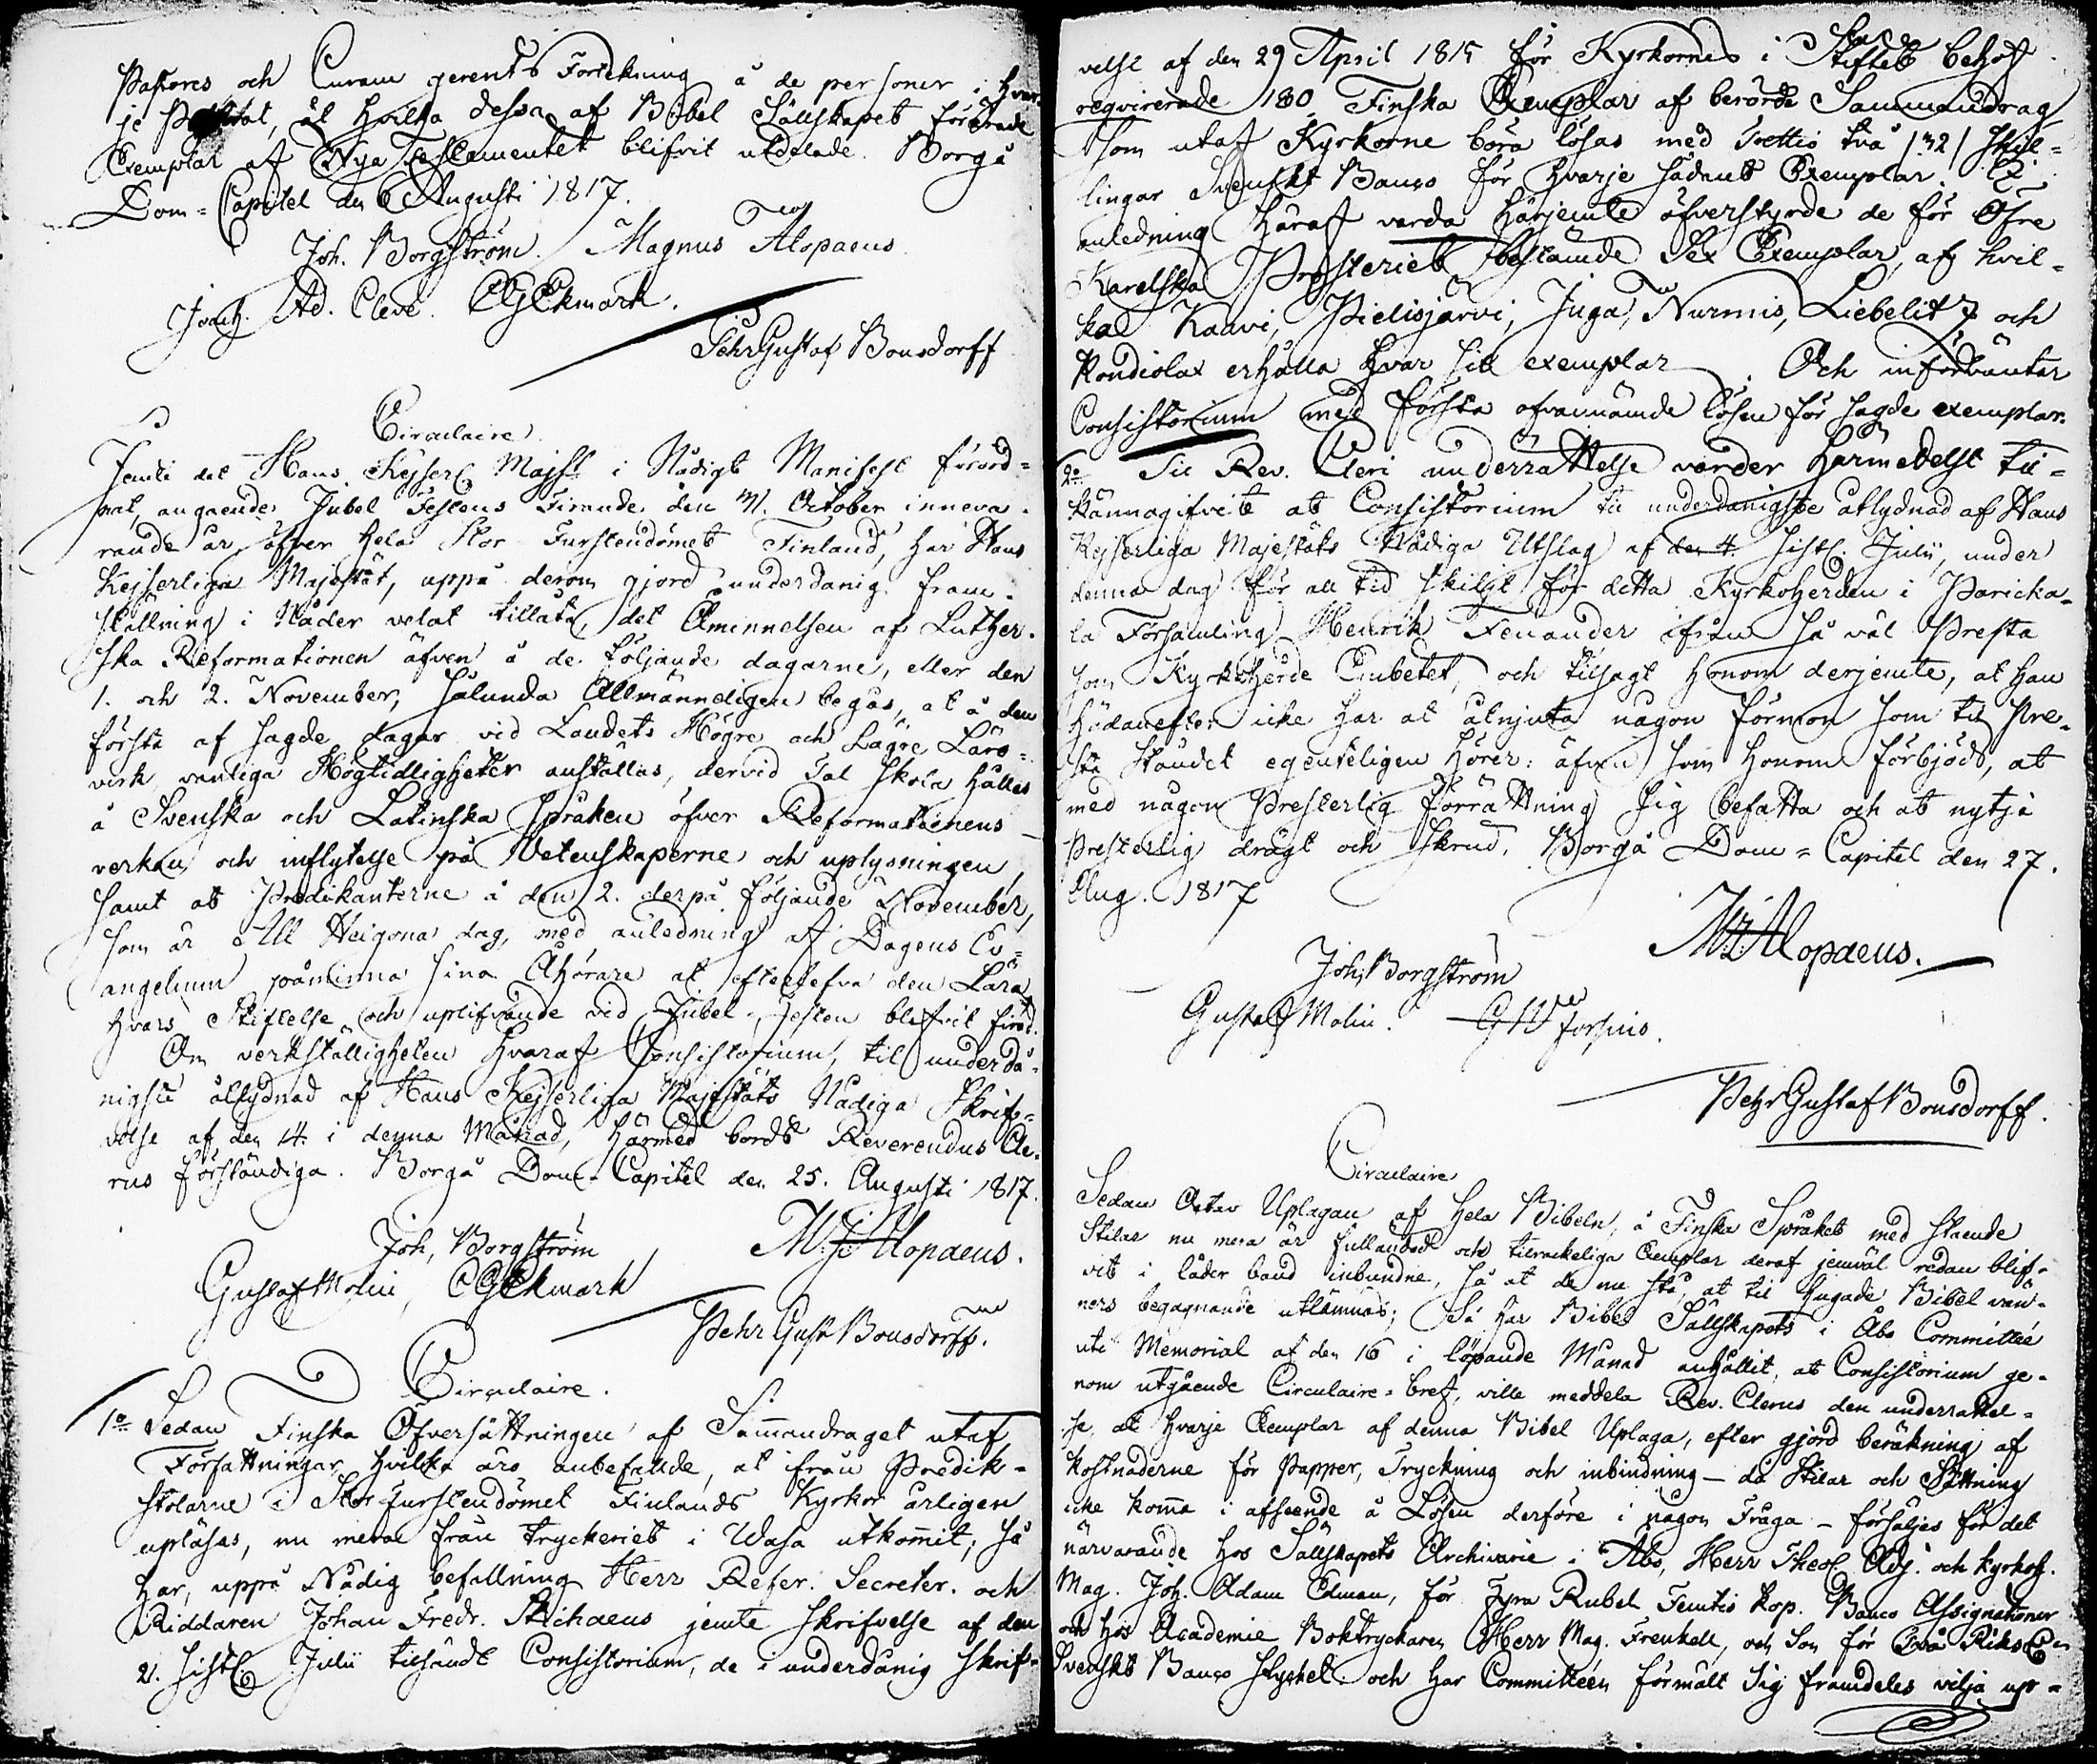 Pastores och Curam gerents Förtekning å de personer i hvar-
je Pastorat, åt hvilka dessa af Bibel Sällskapet förärade
Exemplar af Nya Testamentet blifvit utdelade. Borgå
Dom-Capitel den 6 Augusti 1817.
Joh. Borgström. Magnus Alopaeus
Joach. Ad. Cleve. CGEkmark.
Pehr Gustaf Bonsdorff
Circulaire
Jemte det Hans Kejserl. Majst. i Nådigt Manifest förord-
nat, angaende Jubel Festens Firande den 31. October inneva-
rande år öfver hela Stor Furstendömet Finland, har Hans
Kejserliga Majestät, uppå derom gjord underdanig fram-
ställning i Nåder velat tillåta, det Åminnelsen af Luther-
ska Reformationen äfven å de följande dagarne, eller den
1. och 2. November, sålunda Allmänneligen begås, at å den
första af sagde dagar vid Landets Högre och Lägre Läro-
verk vanliga Högtidligheter anställas, dervid Tal skola hållas
å Svenska och Latinska språken öfver Reformationens
verkan och inflytelse på Vetenskaperne och uplysningen,
samt at Predikanterne å den 2. derpå följande November,
som är All Helgona dag, med anledning af Dagens Ev-
angelium påminna sina Åhörare at efterlefva den Lära
hvars Stiftelse och uplifvande vid Jubel-Festen blifvit firad.
Om verkställigheten hvaraf Consistorium, til underdå-
nigste åtlydnad af Hans Kejserliga Majestäts Nådiga Skrif-
velse af den 14 i denna Månad, härmed bordt Reverendus Cle-
rus förständiga. Borgå Dom-Capitel den 25. Augusti 1817.
Joh, Borgström M. J. Alopaeus.
Gustaf Molin, CGEkmark
Pehr Gust Bonsdorff.
Circulaire.
1o Sedan Finska Öfversättningen af Sammandraget utaf
Författningar, hvilka äro anbefallde, at ifrån Predik-
stolarne i Stor Furstendömet Finlands Kyrkor årligen
upläsas, nu mera från tryckeriet i Wasa utkommit; så
har, uppå Nådig befallning Herr Refer. Secreter. och
Riddaren Johan Fredr. Stichaeus jemte skrifvelse af den
21. sistl. Julii tilsändt Consistorium, de i underdånig skrif-
velse af den 29 April 1815 för Kyrkornes i Stiftet behof
reqvirerade 180 Finska Exemplar af berörde Sammandrag,
som utaf Kyrkorne böra lösas med Trettio två /32/ skil-
lingar Svenskt Banco för hvarje sådant Exemplar. I
anledning häraf varda härjemte öfverstyrde de för Öfre
Karelska Prosteriet bestämde Sex Exemplar, af hvil-
ka Kaavi, Pielisjärvi, Juga, Nurmis, Liebelitz och
Kondiolax erhålla hvar sitt exemplar. Och införväntar
Consistorium med första ofvannämde lösen för sagde exemplar.
2o Til Rev. Cleri underrättelse varder härmedelst til-
kännagifvit at Consistorium til underdanigste åtlydnad af Hans
Kejserliga Majestäts Nådiga Utslag af den 4 sistl. Julii, under
denna dag för all tid skiljt för detta Kyrkoherden i Paricka-
la Församling Henrik Fenander ifrån så väl Presta
som Kyrkoherde Embetet, och tilsagt honom derjemte, at han
hädanefter icke har at åtnjuta någon förmon som til Pre-
sta Ståndet egenteligen hörer: äfven som honom förbjöds, at
med någon Presterlig förrättning sig befatta och at nytja
Presterlig drägt och skrud. Borgå Dom-Capitel den 27.
Aug. 1817
M. J. Alopaeus.
Joh, Borgström
Gustaf Molin.
Pehr Gustaf Bonsdorff.
Circulaire
Sedan Octav Uplagan af hela Bibeln, å Finska Språket med stående
Stilar nu mera är fulländad och tilräckeliga Exemplar deraf jemväl redan blif-
vit i läder band inbundne, så at de nu stå, at til hugade Bibel vän-
ners begagnande utlämnas; Så har Bibel Sällskapets i Åbo Committeé
uti Memorial af den 16 i löpande Månad anhållit, at Consistorium ge-
nom utgående Circulaire-bref, ville meddela Rev. Clerus den underrättel-
se, at hvarje Exemplar af denna Bibel Uplaga, efter gjord beräkning af
kostnaderne för Papper, Tryckning och inbindning - då Stilar och Sättning
icke komma i afseende å Lösen derföre i någon Fråga - försäljes för det
närvarande hos Sällskapets Archivarie i Åbo, Herr Theol. Adj. och Kyrkoh.
Mag. Joh. Adam Edman, för Fyra Rubel Femtio kop. Banco Assignationer
och hos Academie Boktryckaren Herr Mag. Frenkell, och Son för Två Riksd.
Svenskt Banco Stycket. och har Committeén förmält sig framdeles vilja upt-